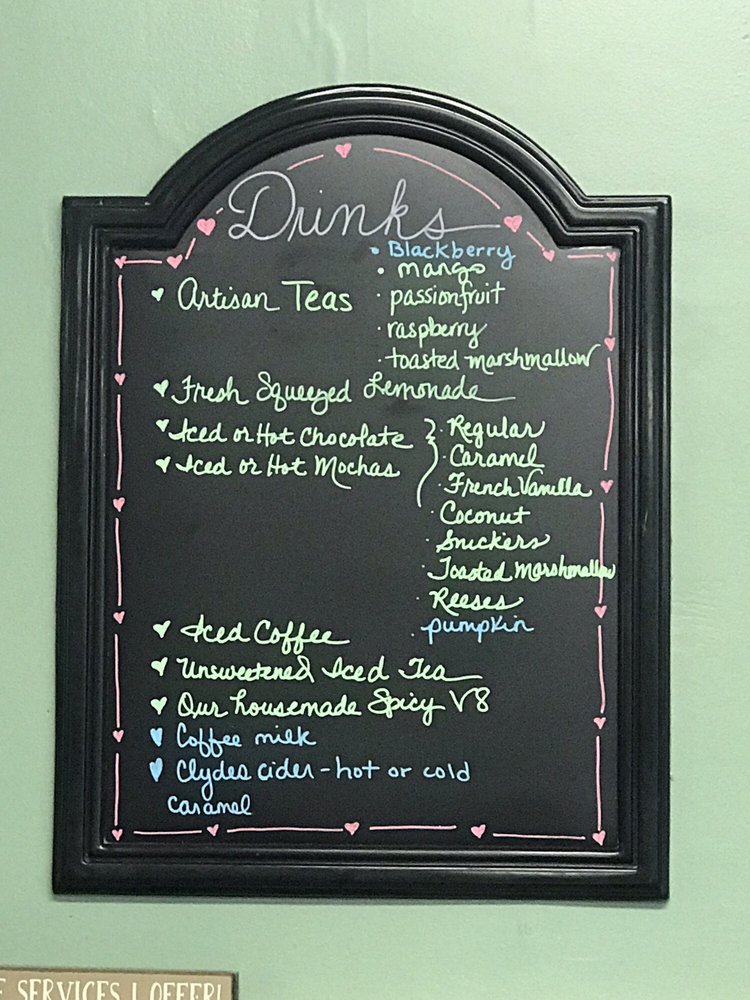 Drinks
• Blackberry
• mango
Artisan Teas · passionfruit
· raspberry
· toasted marshmallow
Fresh Squeezed Lemonade
Iced or Hot Chocolate · Regular
Iced or Hot Mochas · Caramel
· French Vanilla
· Coconut
· Snickers
· Toasted Marshmallow
· Reeses
Iced Coffee · pumpkin
Unsweetened Iced Tea
Our housemade Spicy V8
Coffee milk
Clydes cider - hot or cold
caramel
SERVICES I OFFER!